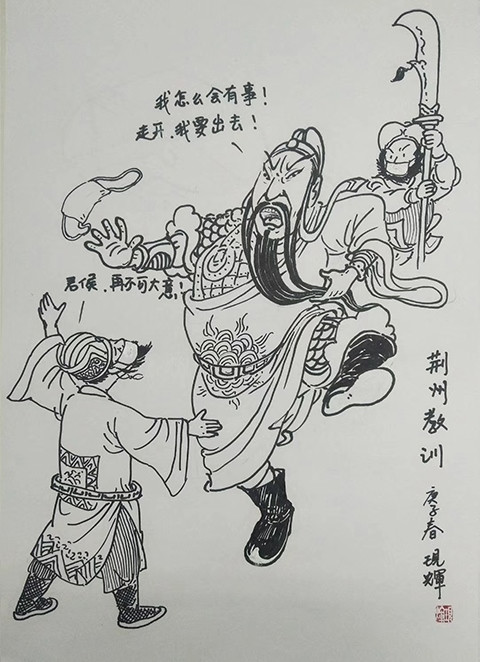 我怎么会有事！
走开.我要出去！
君侯.再不可大意！
荆州教训
庚子春 现輝